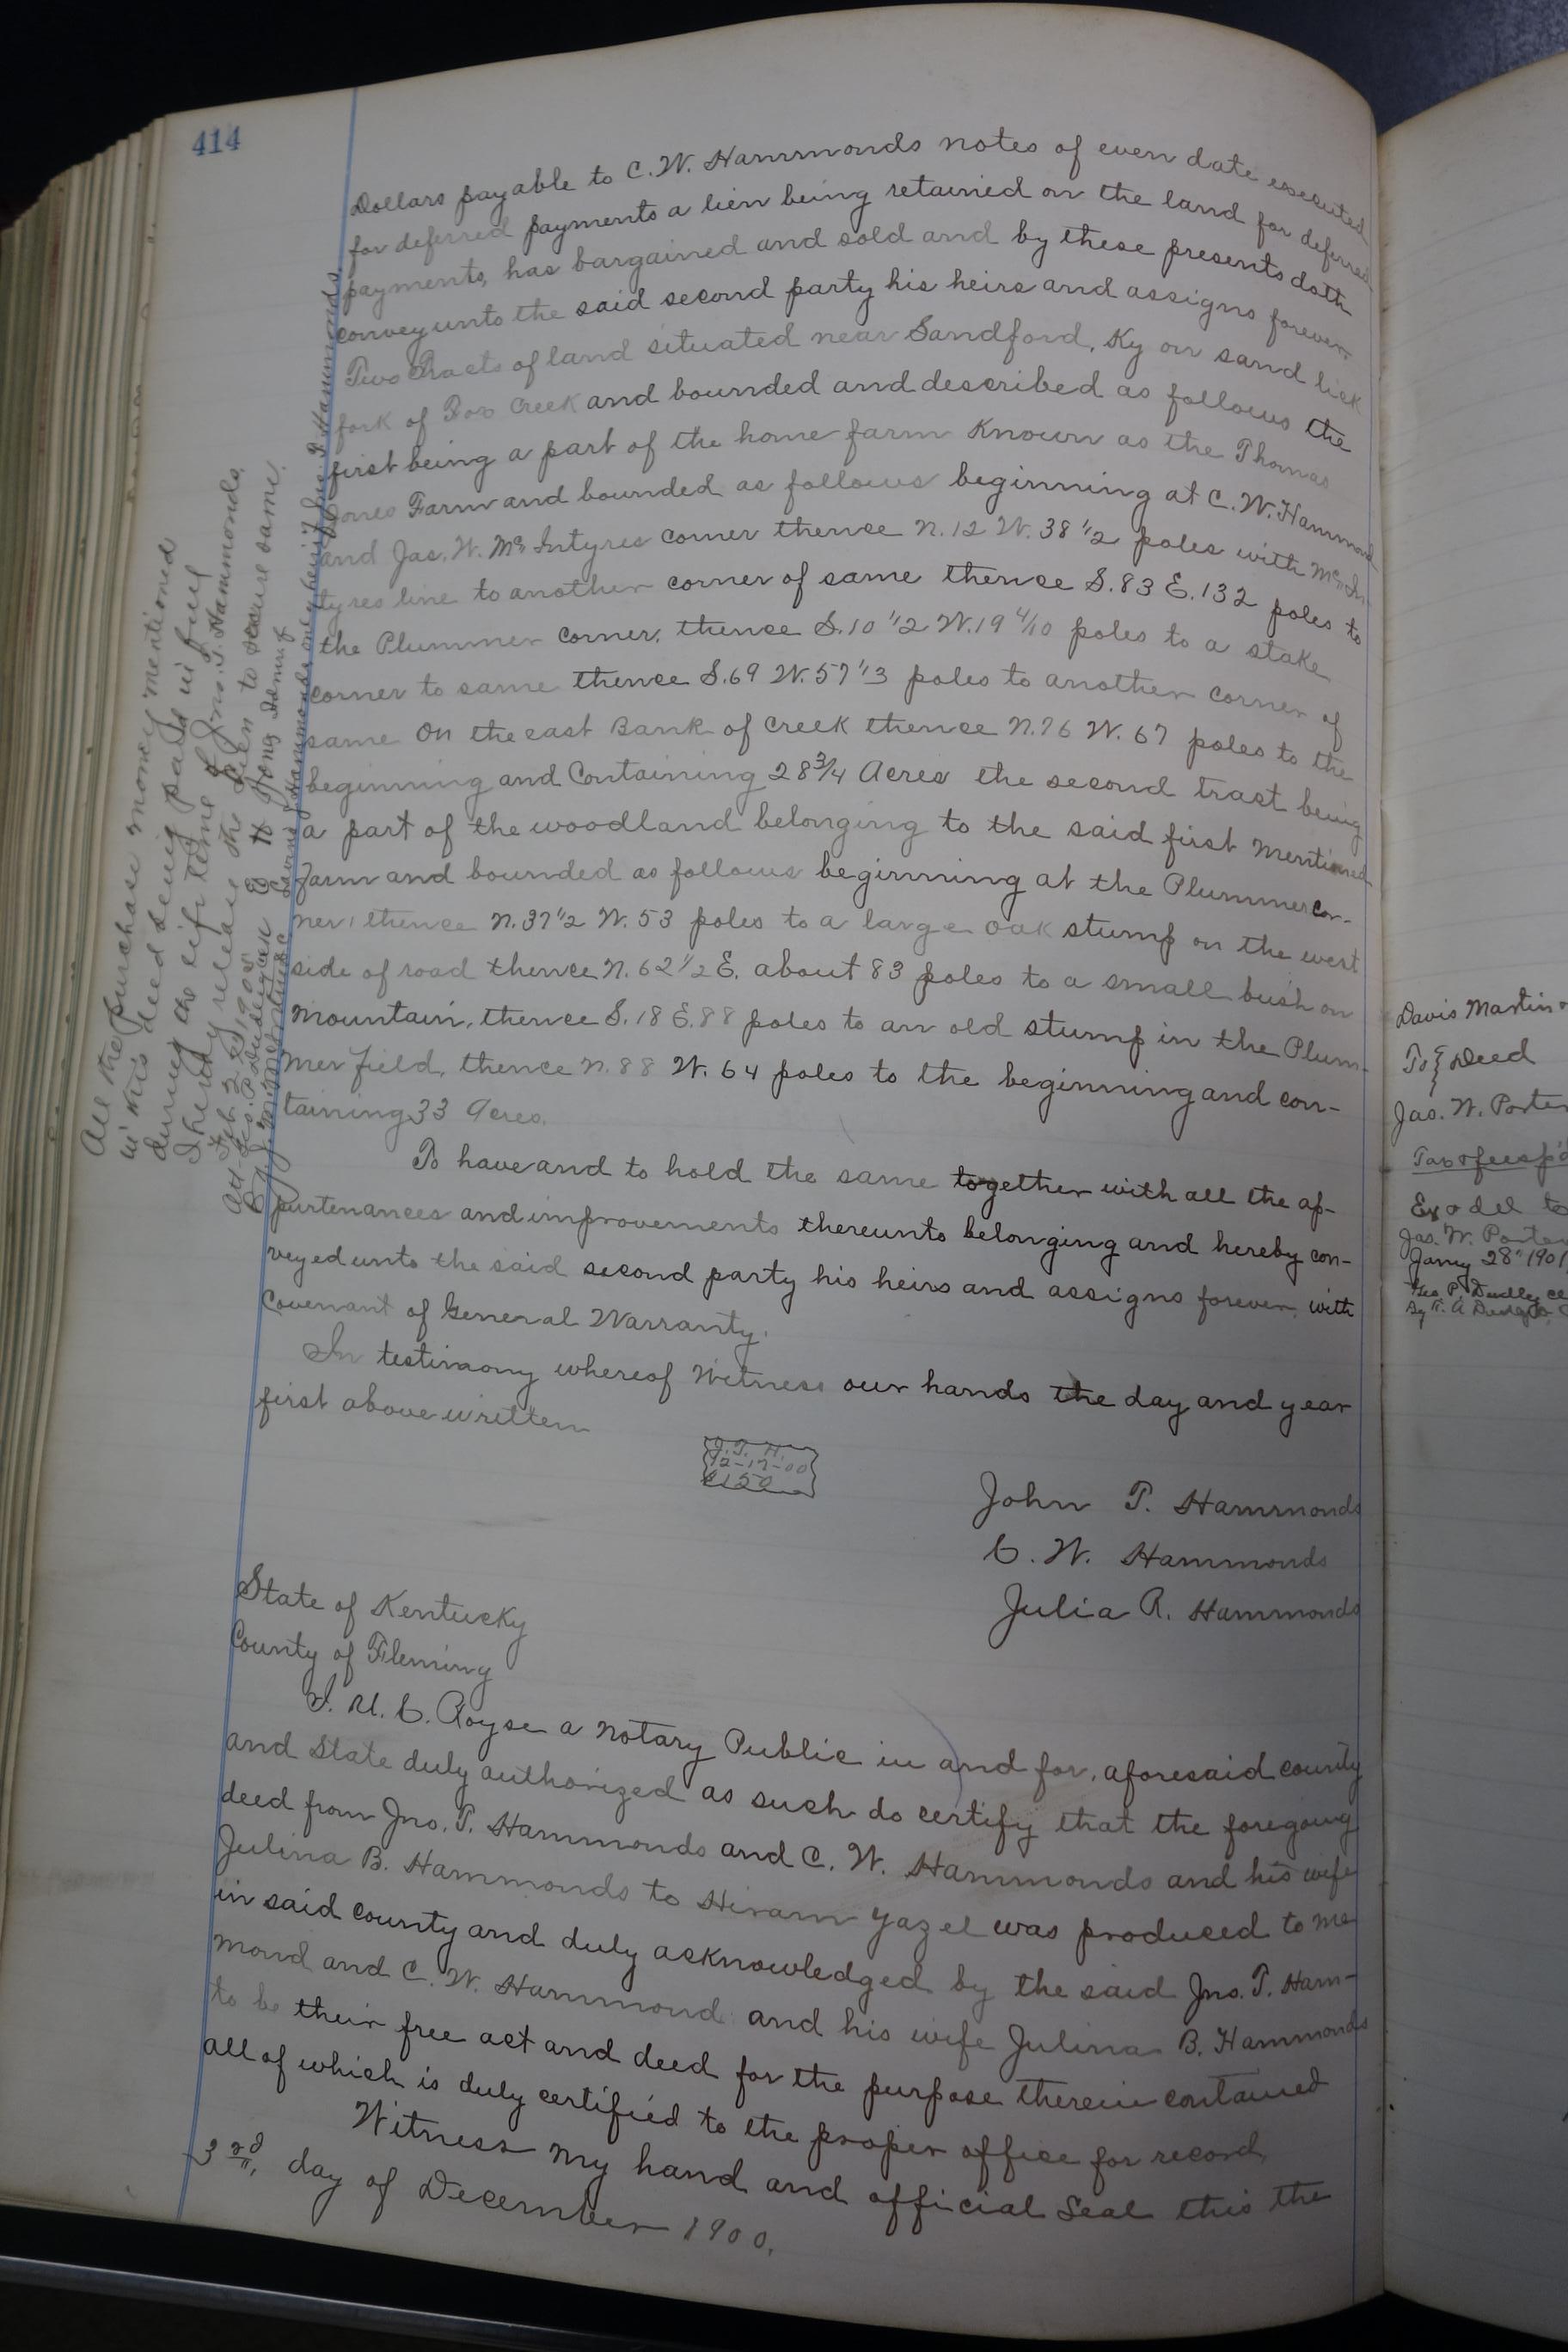 414
Dollars payable to C. W. Hammonds notes of even date executed
for deferred payments a lien being retained on the land for deferred
payments, has bargained and sold and by these presents doth
convey unto the said second party his heirs and assigns forever
Two Tracts of land situated near Sandford, Ky on sand lick
fork of Fox Creek and bounded and described as follows the
first being a part of the home farm Known as the Thomas
Jones Farm and bounded as follows beginning at C. W. Hammond
and Jas. W. McIntyres corner thence N. 12 W. 38 1/2 poles with McIn
tyres line to another corner of same thence S. 83 E. 132 poles to
the Plummer corner, thence S. 10 1/2 W. 19 4/10 poles to a stake
corner to same thence S. 69 W. 57 1/3 poles to another corner of
same On the east Bank of Creek thence N. 76 W. 67 poles to the
beginning and Containing 28 3/4 Acres the second tract being
a part of the woodland belonging to the said first Mentioned
Farm and bounded as follows beginning at the Plummer cor-
ner, thence N. 37 1/2 W. 53 poles to a large oak stump on the west
side of road thence N. 62 1/2 E. about 83 poles to a small bush on
mountain, thence S. 18 E. 88 poles to an old stump in the Plum-
mer field, thence N. 88 W. 64 poles to the beginning and con-
taining 33 Acres.
To have and to hold the same together with all the ap-
purtenances and improvements thereunto belonging and hereby con-
veyed unto the said second party his heirs and assigns forever, with
Covenant of General Warranty.
In testimony whereof Witness our hands the day and year
first above written
J. T. H.
12-17-00
John T. Hammonds
C. W. Hammonds
Julia R. Hammonds
State of Kentucky
County of Fleming
I. U. C. Royse a Notary Public in and for, aforesaid county
and State duly authorized as such do certify that the foregoing
deed from Jno. T. Hammonds and C. W. Hammonds and his wife
Julina B. Hammonds to Hiram Yazel was produced to me
in said county and duly acknowledged by the said Jno. T. Ham-
mond and C. W. Hammond and his wife Julina B. Hammonds
to be their free act and deed for the purpose therein contained
all of which is duly certified to the proper office for record,
Witness my hand and official Seal this the
3rd, day of December 1900.
All the purchase money mentioned
in this deed being paid in full
during the life time of Jno. T. Hammonds
I hereby release the lien to secure same.
Davis Martin
To } Deed
Jas. W. Porter
Tax & fees pd
Ex & del to
Jas. W. Porter
Jany 28" 1901
Geo. P. Dudley